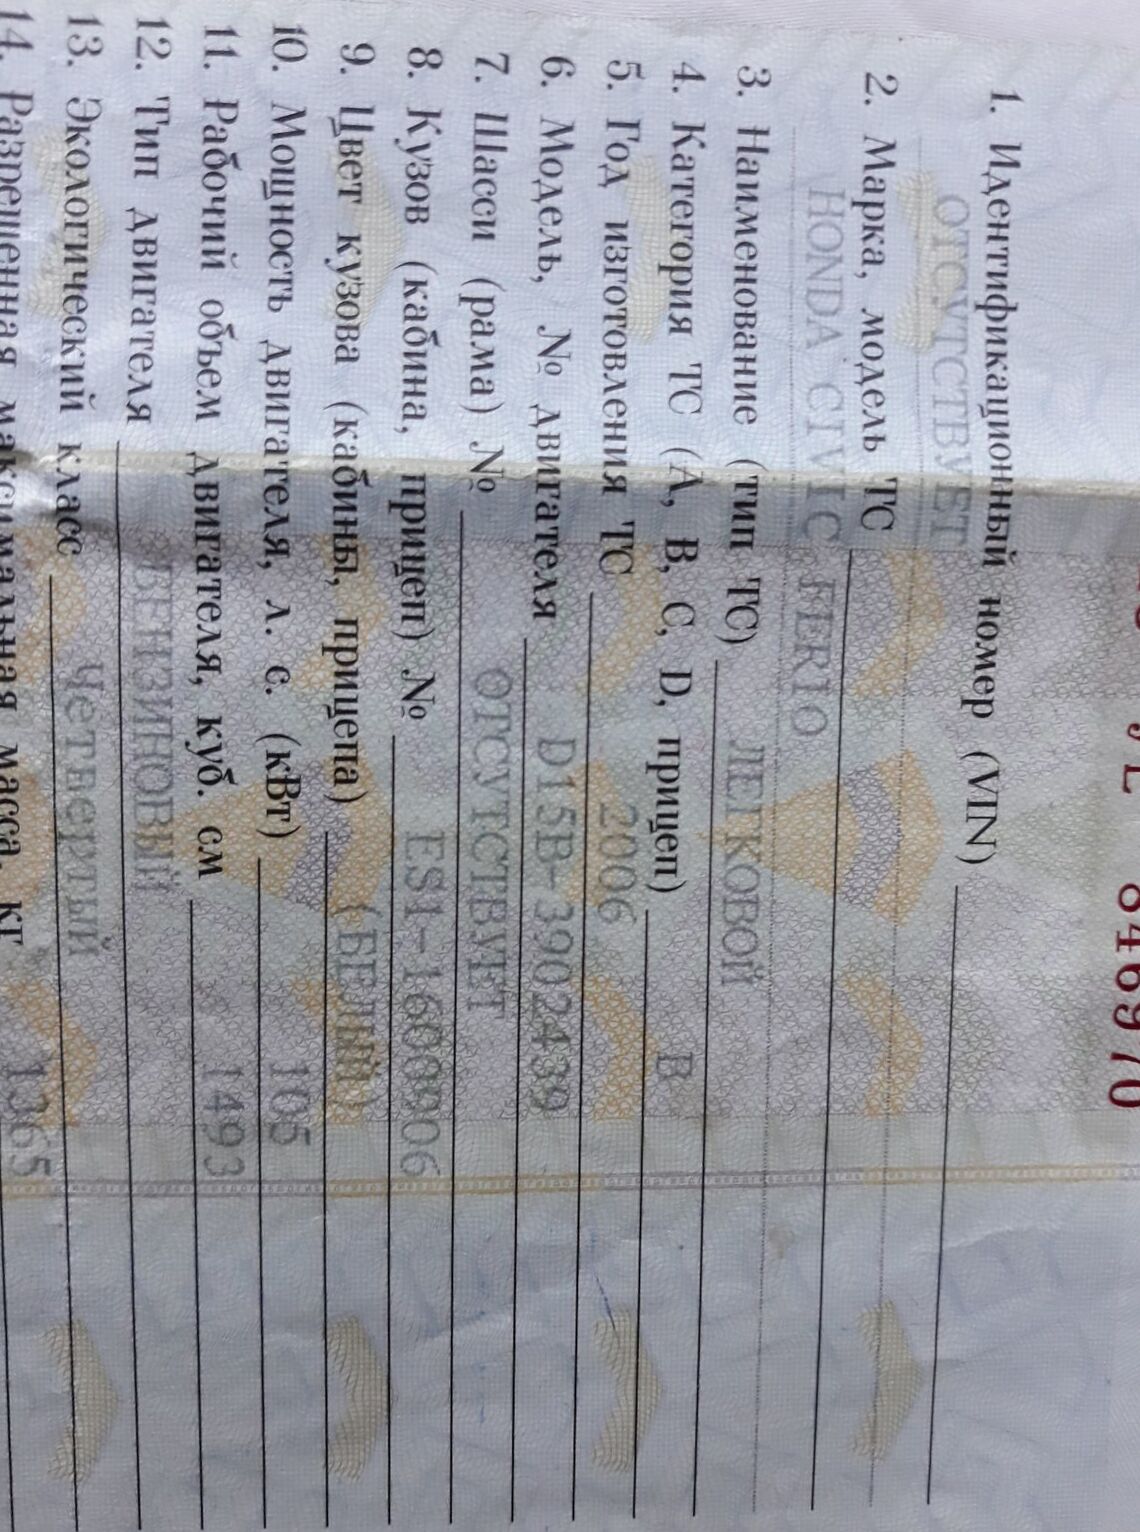 846970
1. Идентификационный номер (VIN)
ОТСУТСТВУЕТ
2. Марка, модель ТС
HONDA CIVIC FERIO
3. Наименование (тип ТС) ЛЕГКОВОЙ
4. Категория ТС (A, B, C, D, прицеп) B
5. Год изготовления ТС 2006
6. Модель, № двигателя D15B-3902439
7. Шасси (рама) № ОТСУТСТВУЕТ
8. Кузов (кабина, прицеп) № ES1-1600906
9. Цвет кузова (кабины, прицепа) (БЕЛЫЙ)
10. Мощность двигателя, л. с. (кВт) 105
11. Рабочий объем двигателя, куб. см 1493
12. Тип двигателя БЕНЗИНОВЫЙ
13. Экологический класс Четвертый
14. Разрешенная максимальная масса, кг 1365